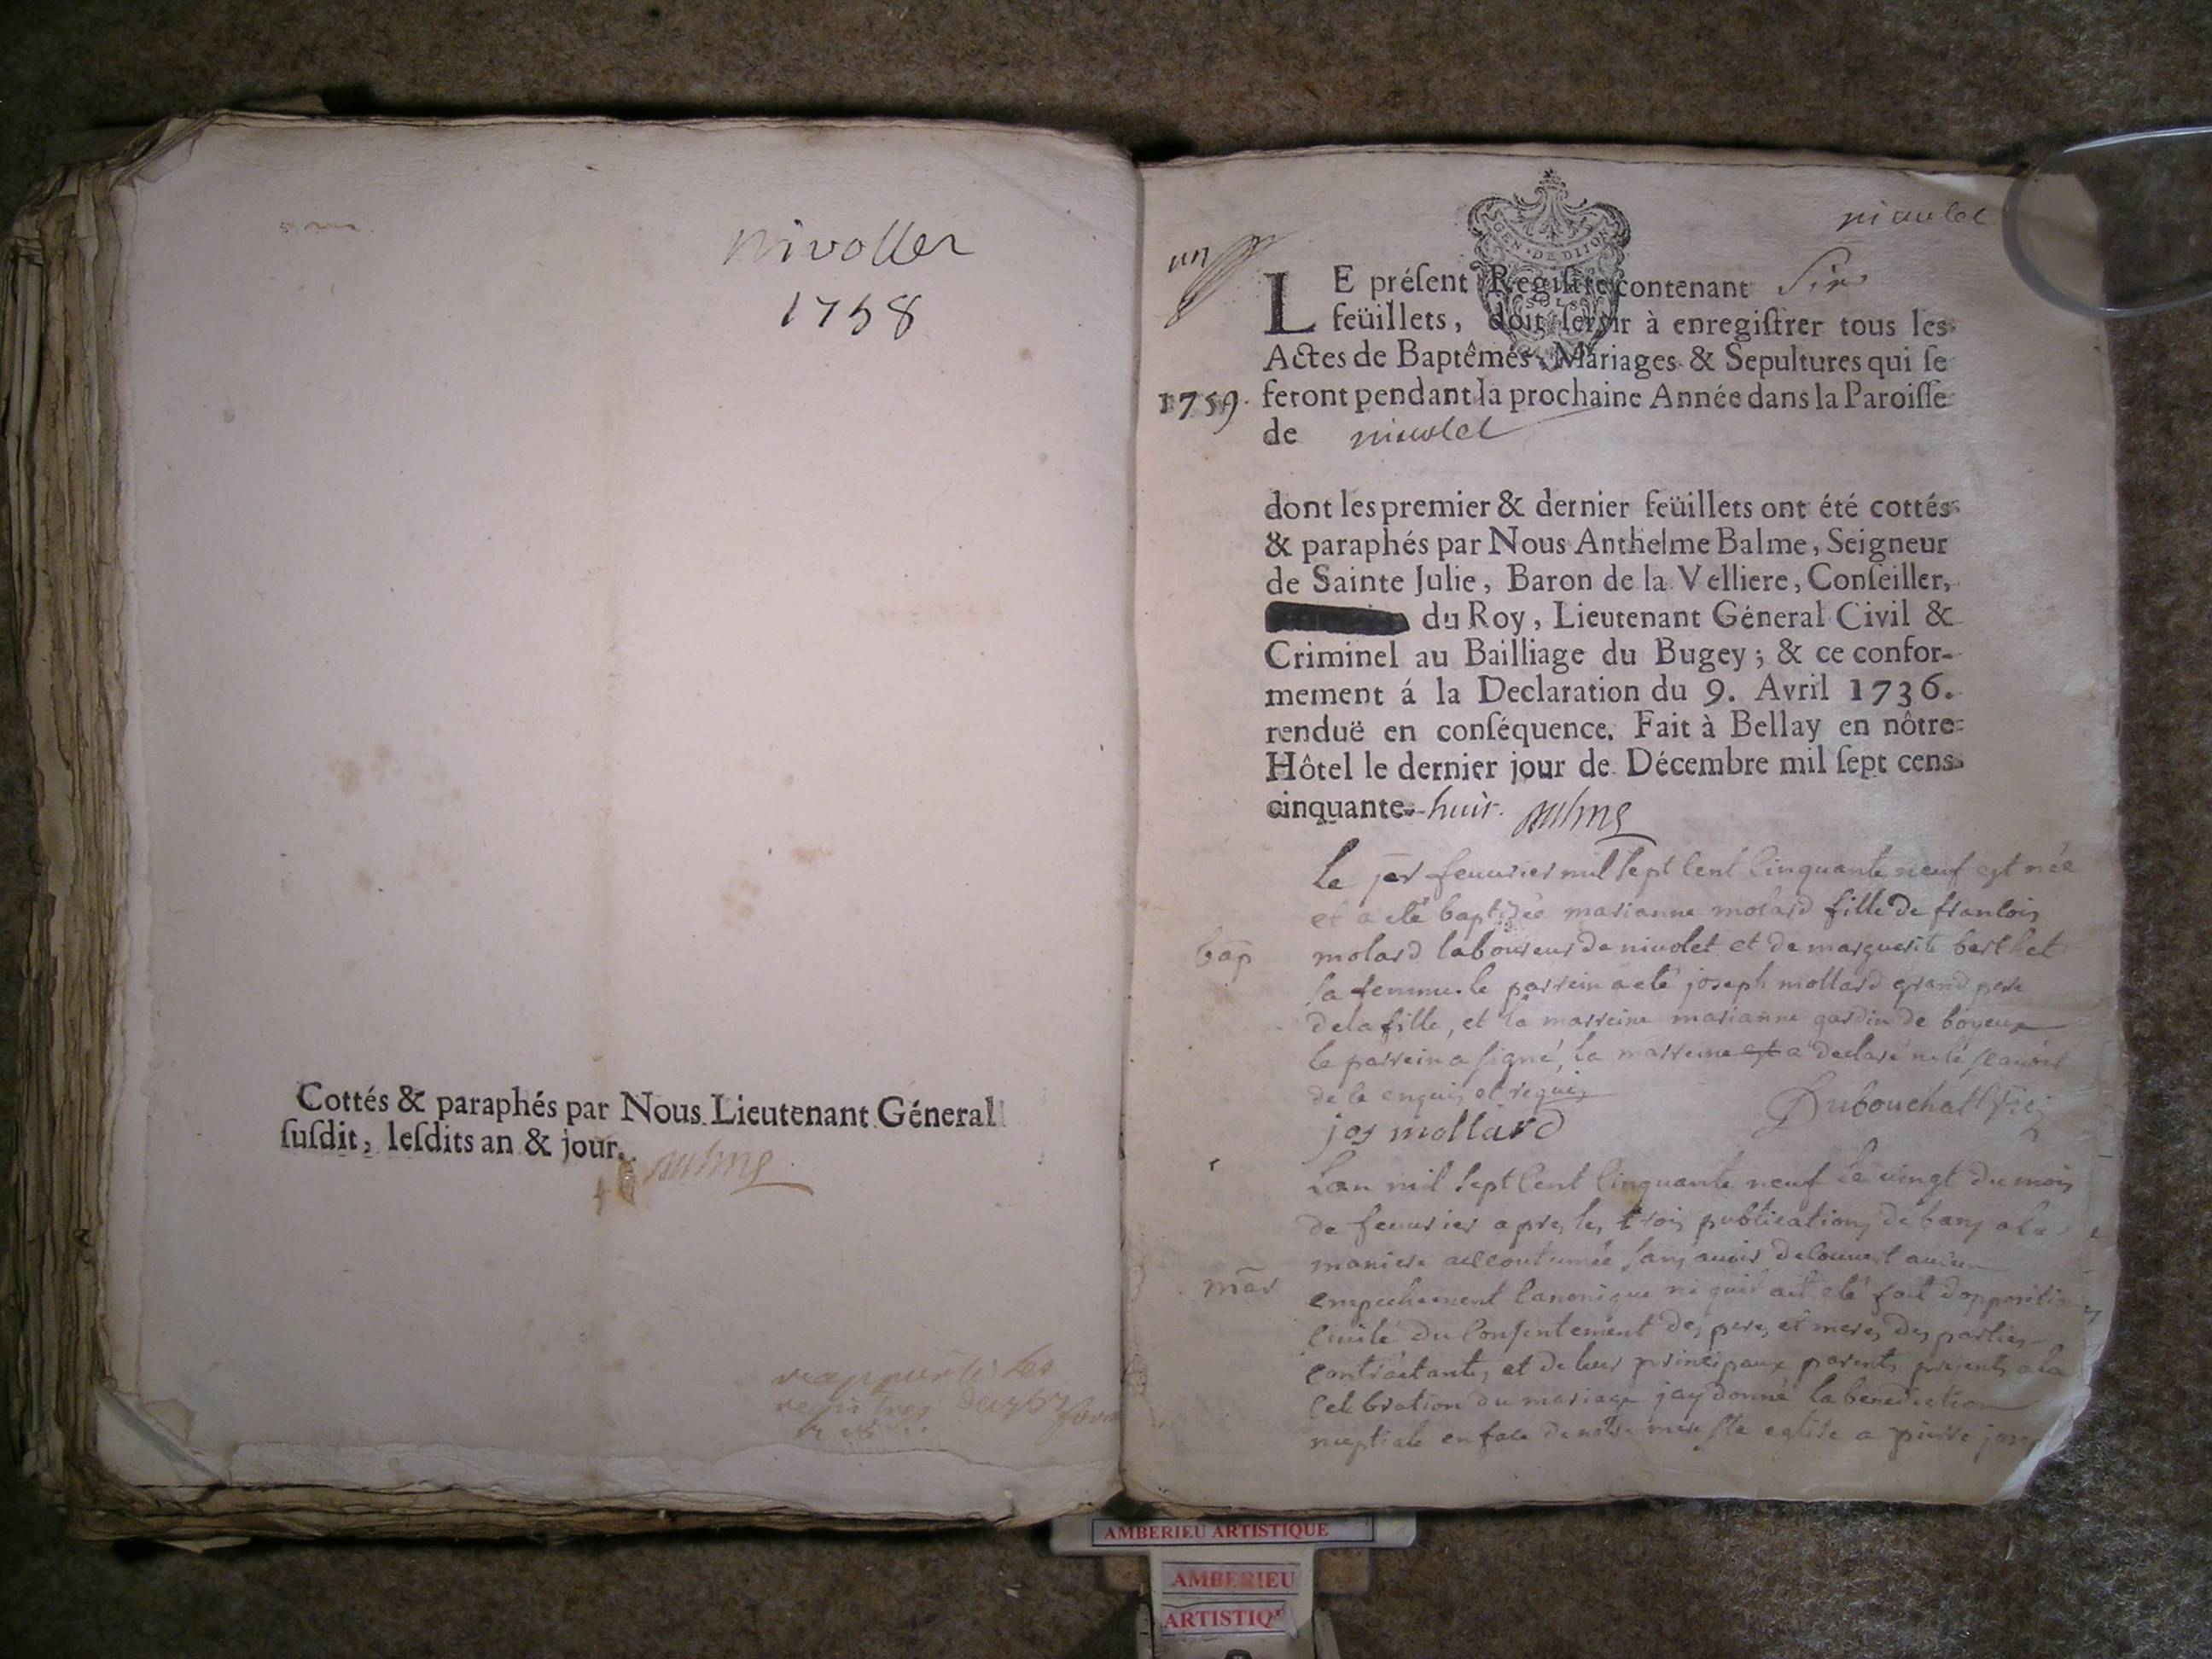 nivollet
1758
Cottés & paraphés par Nous Lieutenant Géneral
ſuſdit, leſdits an & jour.
nivolet
un
GEN · DE DIJON
LE préſent Regiſtre contenant Six
feüillets, doit ſervir à enregiſtrer tous les
Actes de Baptêmes, Mariages & Sepultures qui ſe
1759. feront pendant la prochaine Année dans la Paroiſſe
de nivolet
dont les premier & dernier feüillets ont été cottés
& paraphés par Nous Anthelme Balme, Seigneur
de Sainte Julie, Baron de la Velliere, Conſeiller,
du Roy, Lieutenant Géneral Civil &
Criminel au Bailliage du Bugey; & ce confor-
mement á la Declaration du 9. Avril 1736.
renduë en conſéquence. Fait à Bellay en nôtre
Hôtel le dernier jour de Décembre mil ſept cens
cinquante-huit.
Le jer feuurier mil sept cent cinquante neuf est née
et a eté baptizée marianne molard fille de francois
bap molard laboureur de nivolet et de marguerite berthet
sa femme. le parrein a eté joseph mollard grand pere
de la fille, et la marreine marianne gardin de boyeux
le parrein a signé, la marreine a declaré ne le scauoir
de ce enquis et requis
jos mollard Dubouchat
Lan mil sept cent cinquante neuf le vingt du mois
de feuurier apres les trois publications de bans a la
maniere accoutumée sans auoir decouuert aucun
mar empechement canonique ni quil ait eté fait dopposition
ciuile du consentement des peres et meres des parties
contractantes, et de leur principaux parents presents a la
celebration du mariage jay donné la benediction
nuptiale en face de notre mere ste eglise a pierre
AMBERIEU ARTISTIQUE
AMBERIEU
ARTISTIQ